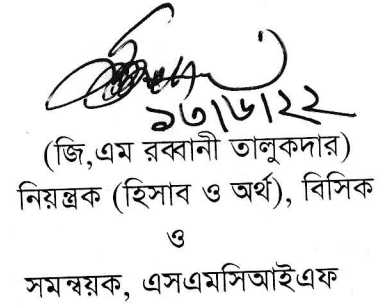 ১৩/৬/২২
(জি,এম রব্বানী তালুকদার)
নিয়ন্ত্রক (হিসাব ও অর্থ), বিসিক
ও
সমন্বয়ক, এসএমসিআইএফ